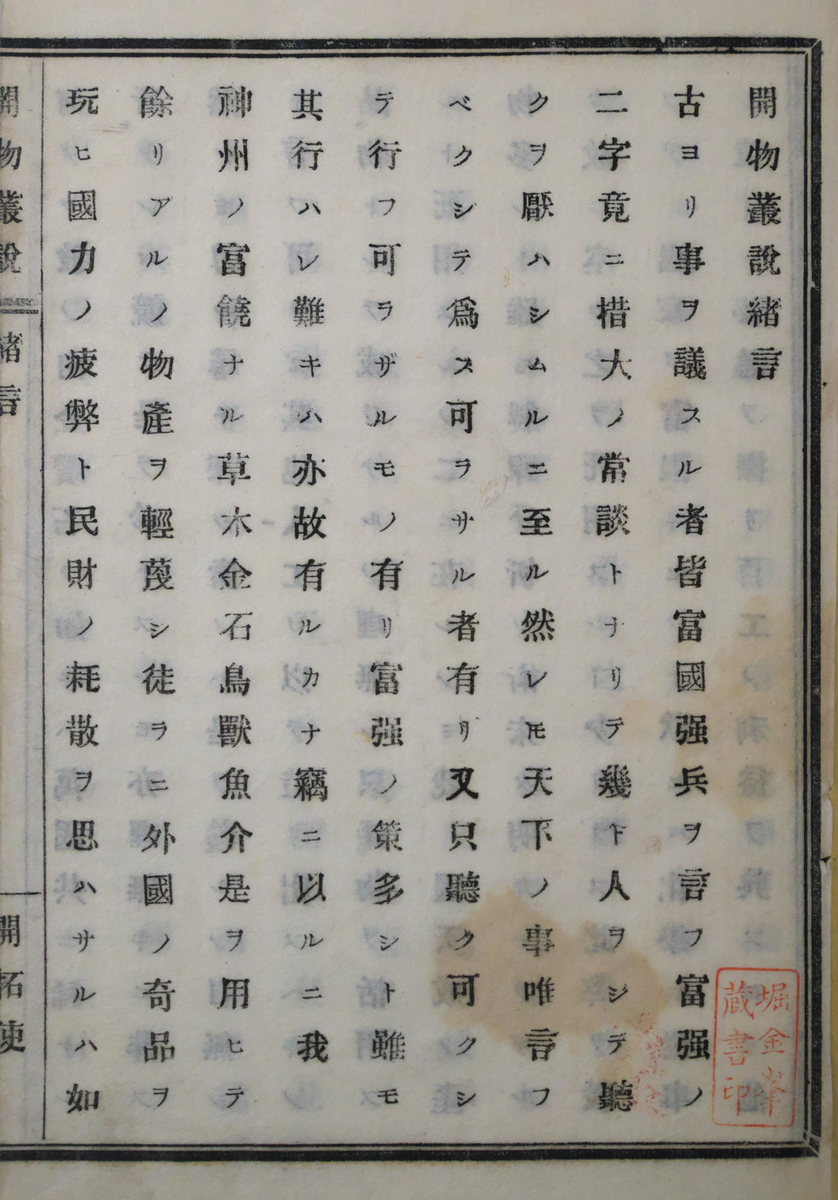 開物叢說緒言
古ヨリ事ヲ議スル者皆富國强兵ヲ言フ富强ノ
二字竟ニ措大ノ常談トナリテ幾ト人ヲシテ聽
クヲ厭ハシムルニ至ル然レ𪜈天下ノ事唯言フ
ベクシテ爲ス可ヲサル者有リ又只聽ク可クシ
テ行フ可ラザルモノ有リ富强ノ策多シト雖モ
其行ハレ難キハ亦故有ルカナ竊ニ以ルニ我
神州ノ富饒ナル草木金石鳥獸魚介是ヲ用ヒテ
餘リアルノ物產ヲ輕蔑シ徒ラニ外國ノ奇品ヲ
玩ヒ國力ノ疲弊ト民財ノ耗散ヲ思ハサルハ如
開物叢說
緒言
開拓使
堀金峯
蔵書印